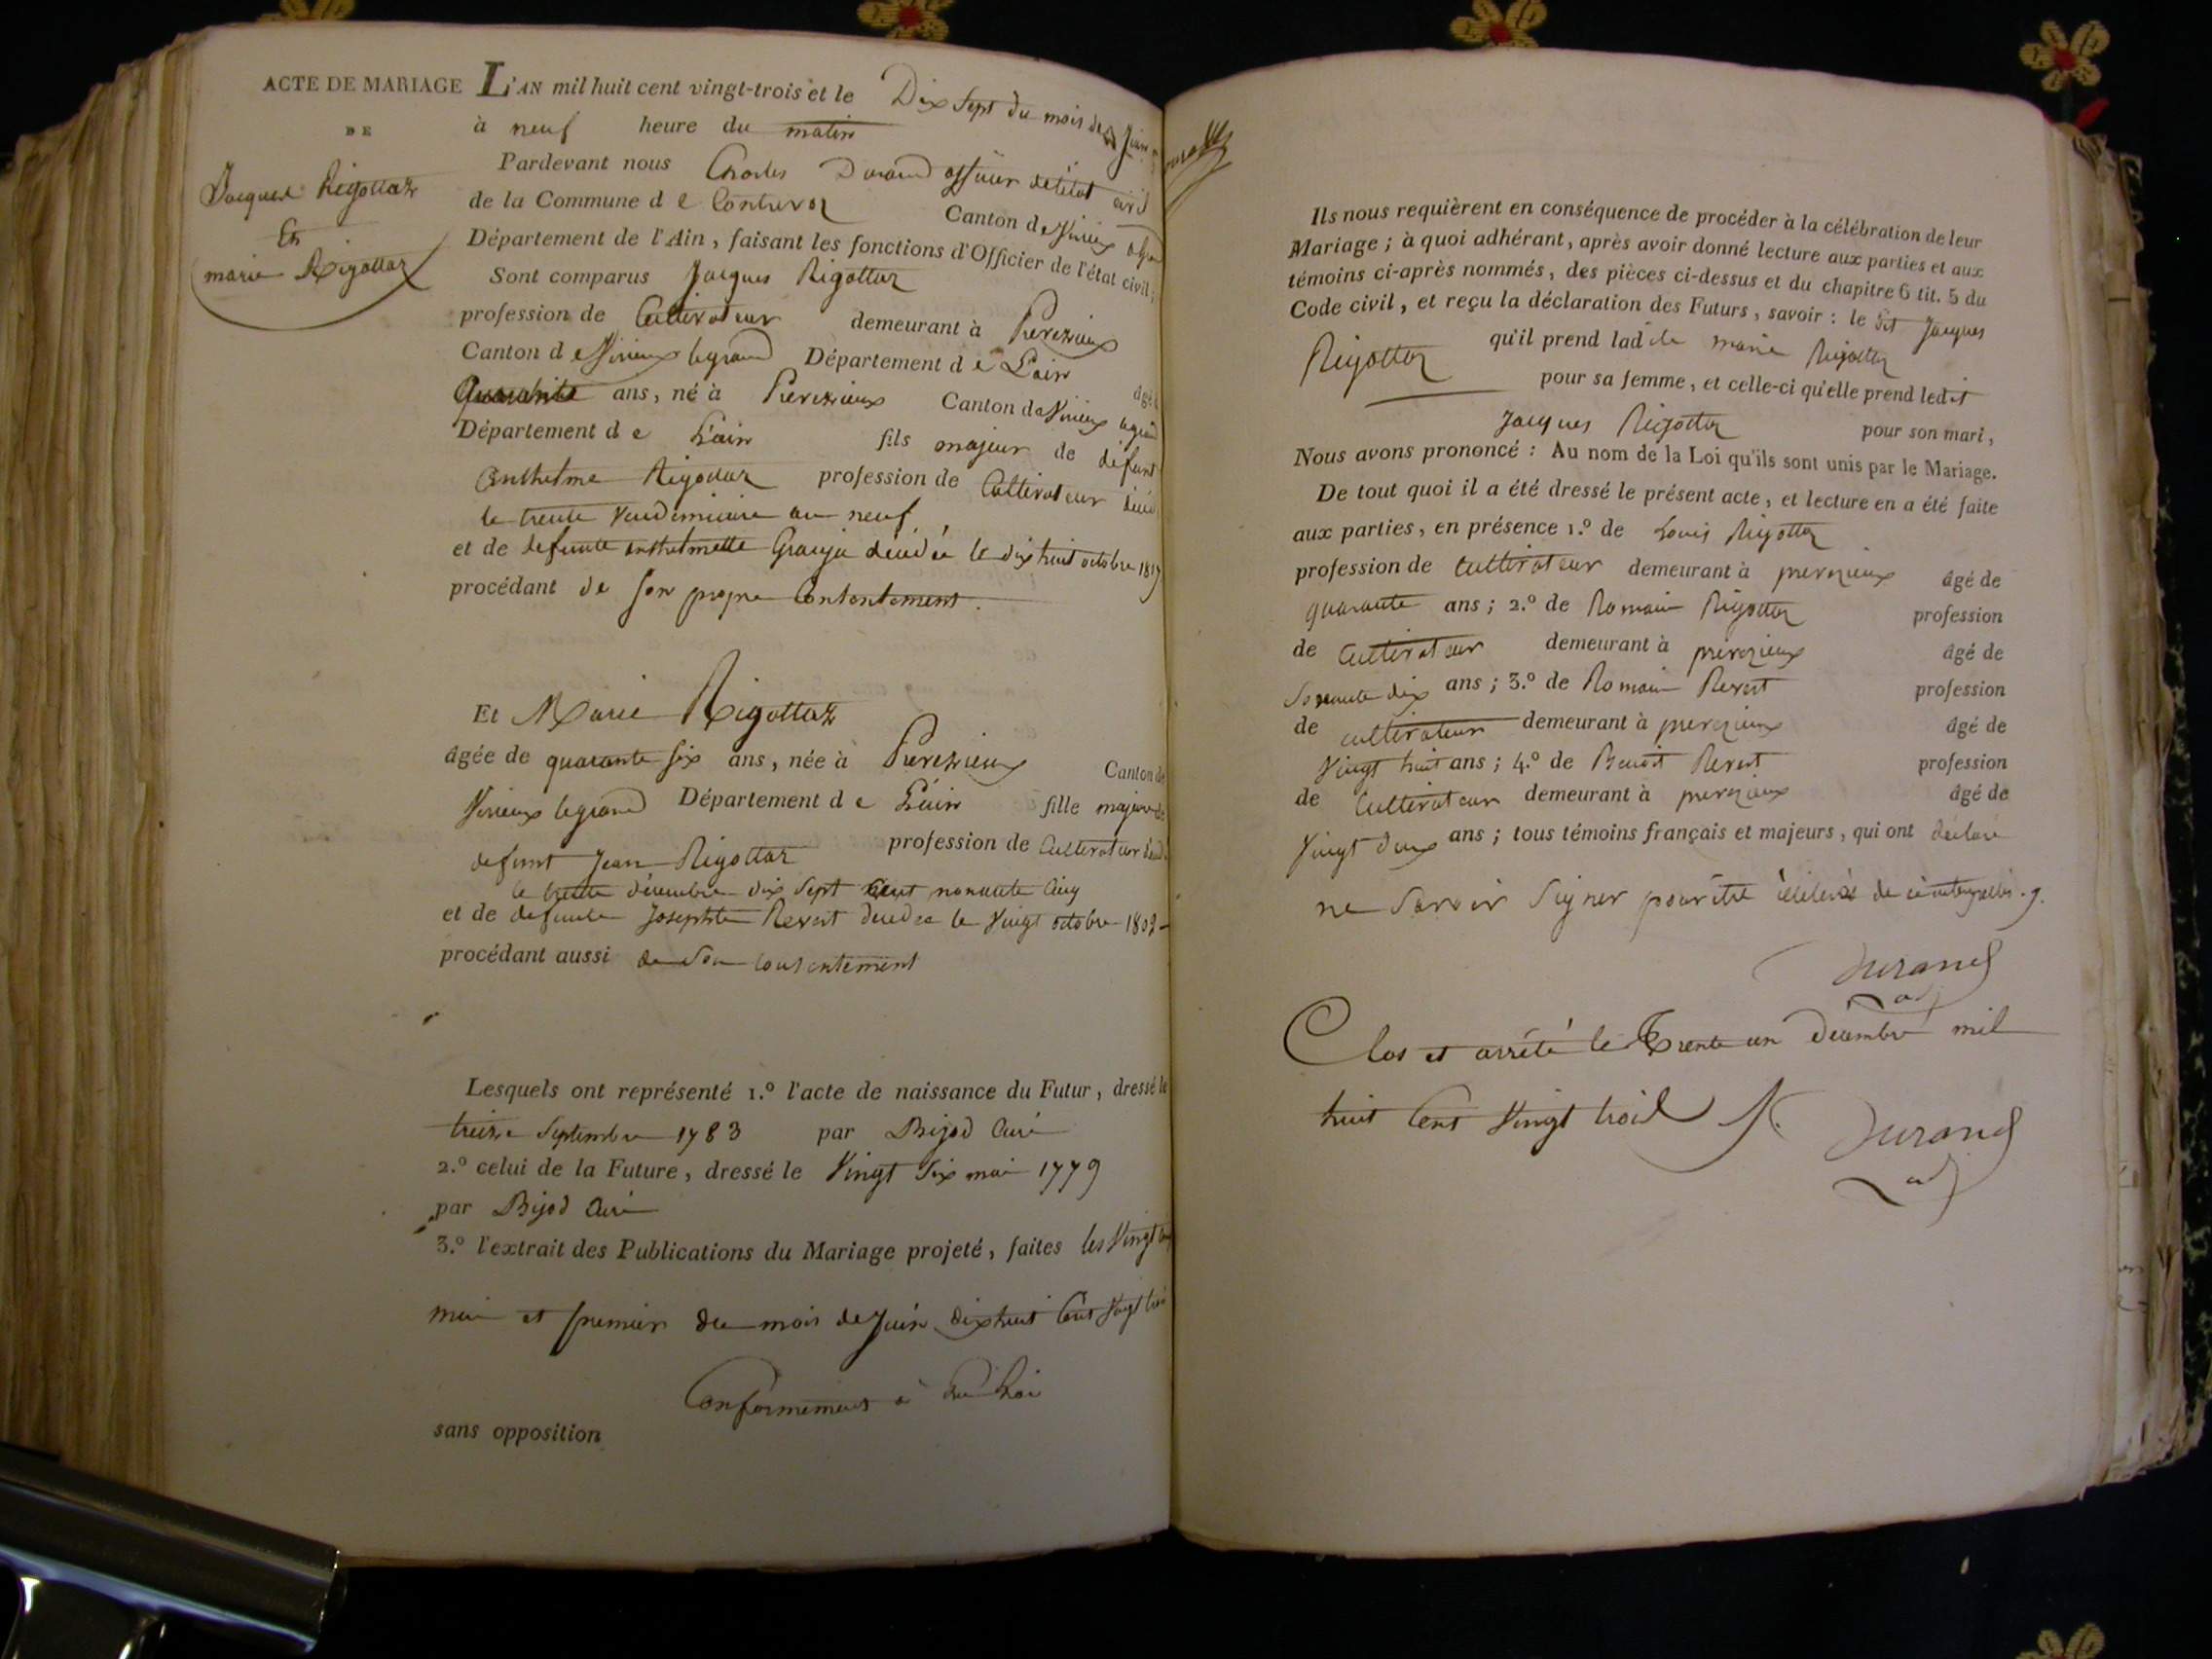 ACTE DE MARIAGE
DE
Jacques Rigottaz
Et
marie Rigottaz
L'AN mil huit cent vingt-trois et le Dix Sept du mois de Juin
à neuf heure du matin
Pardevant nous Charles Durand officier de l'état civil
de la Commune d e Contrevoz Canton de Virieux
Département de l'Ain, faisant les fonctions d'Officier de l'état civil;
Sont comparus Jacques Rigottaz
profession de Cultivateur demeurant à Preveyzieux
Canton d e Virieux legrand Département d e L'ain âgé
quarante ans, né à Preveyzieux Canton de Virieux legrand
Département d e L'ain fils majeur de défunt
anthelme Rigottaz profession de Cultivateur
le trente Vendémiaire an neuf
et de defunte anthelmette Granja décédée le dix huit octobre 1817
procédant de son propre Contentement.
Et Marie Rigottaz
âgée de quarante six ans, née à Preveyzieux Canton de
Virieux legrand Département d e L'ain fille majeure de
defunt Jean Rigottaz profession de Cultivateur
le trente décembre dix Sept Cent nonante Cinq
et de defunte Josephte Revest decedee le Vingt octobre 1802
procédant aussi de Son consentement
Lesquels ont représenté 1.º l'acte de naissance du Futur, dressé le
treize Septembre 1783 par Bijod Curé
2.º celui de la Future, dressé le Vingt Six mai 1779
par Bijod Curé
3.º l'extrait des Publications du Mariage projeté, faites les Vingt
mai et premier du mois de Juin dixhuit Cent Vingt trois
Conformément à La Loi
sans opposition
Ils nous requièrent en conséquence de procéder à la célébration de leur
Mariage; à quoi adhérant, après avoir donné lecture aux parties et aux
témoins ci-après nommés, des pièces ci-dessus et du chapitre 6 tit. 5 du
Code civil, et reçu la déclaration des Futurs, savoir: le dit Jacques
Rigottaz qu'il prend lad ite marie Rigottaz
pour sa femme, et celle-ci qu'elle prend led it
Jacques Rigottaz pour son mari,
Nous avons prononcé: Au nom de la Loi qu'ils sont unis par le Mariage.
De tout quoi il a été dressé le présent acte, et lecture en a été faite
aux parties, en présence 1.º de Louis Rigottaz
profession de Cultivateur demeurant à preveyzieux âgé de
quarante ans; 2.º de Romain Rigottaz profession
de Cultivateur demeurant à preveyzieux âgé de
Soixante dix ans; 3.º de Romain Revest profession
de cultivateur demeurant à preveyzieux âgé de
Vingt huit ans; 4.º de Benoit Revest profession
de Cultivateur demeurant à preveyzieux âgé de
Vingt deux ans; tous témoins français et majeurs, qui ont déclaré
ne Savoir Signer pour être illiterés de ce interpellés.
Durand
adj
Clos et arrêté le Trente un Décembre mil
huit Cent Vingt trois
Durand
adj